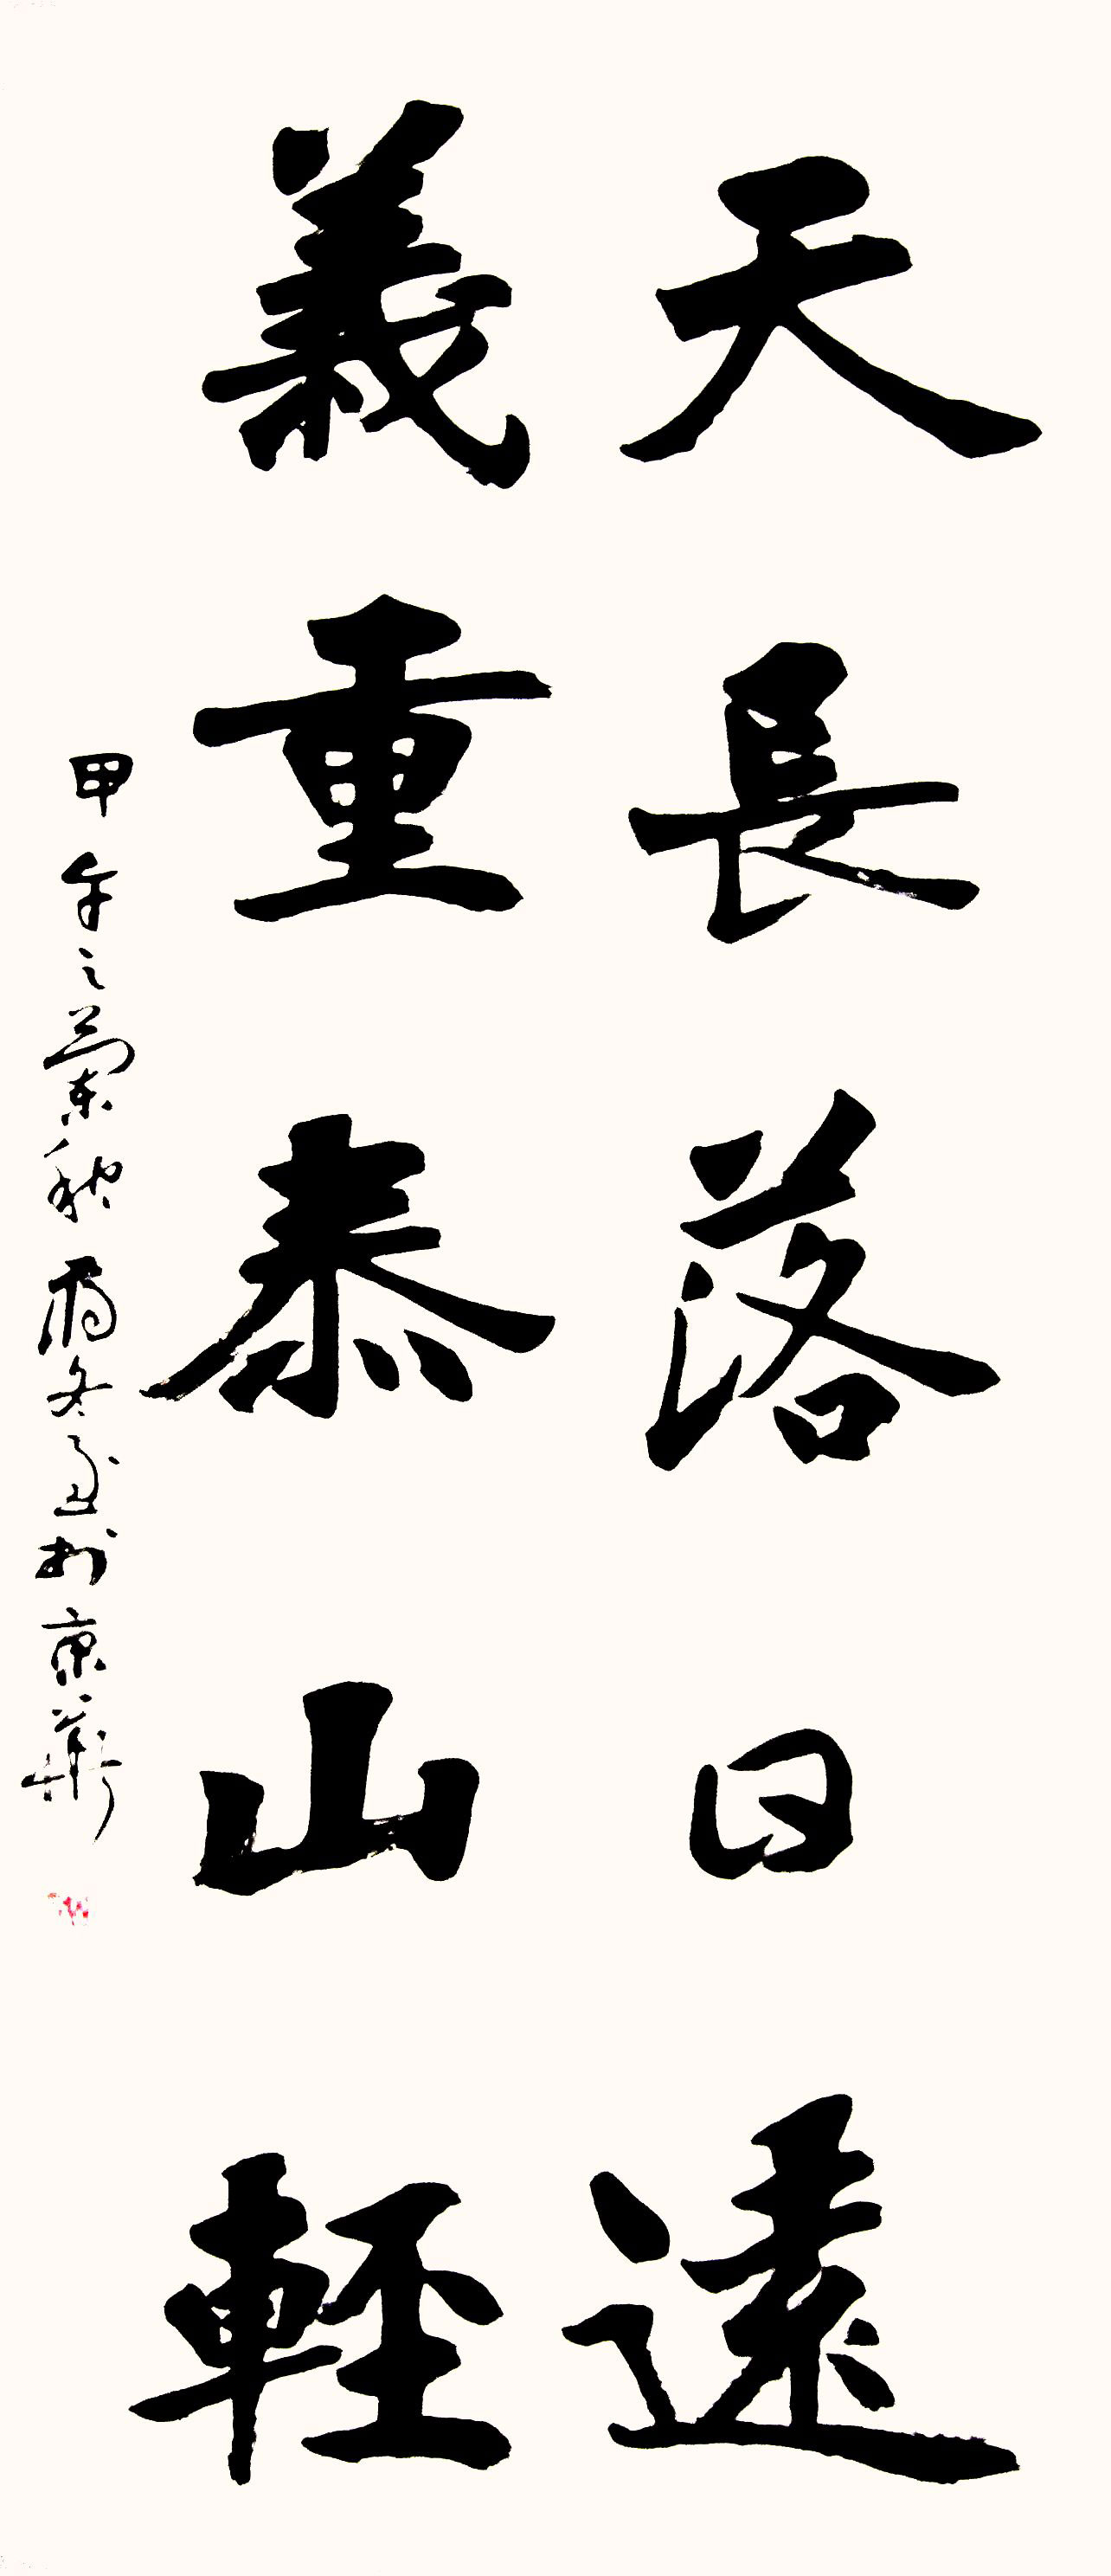 天長落日遠
義重泰山輕
甲午之蘭秋雨冬書於京華